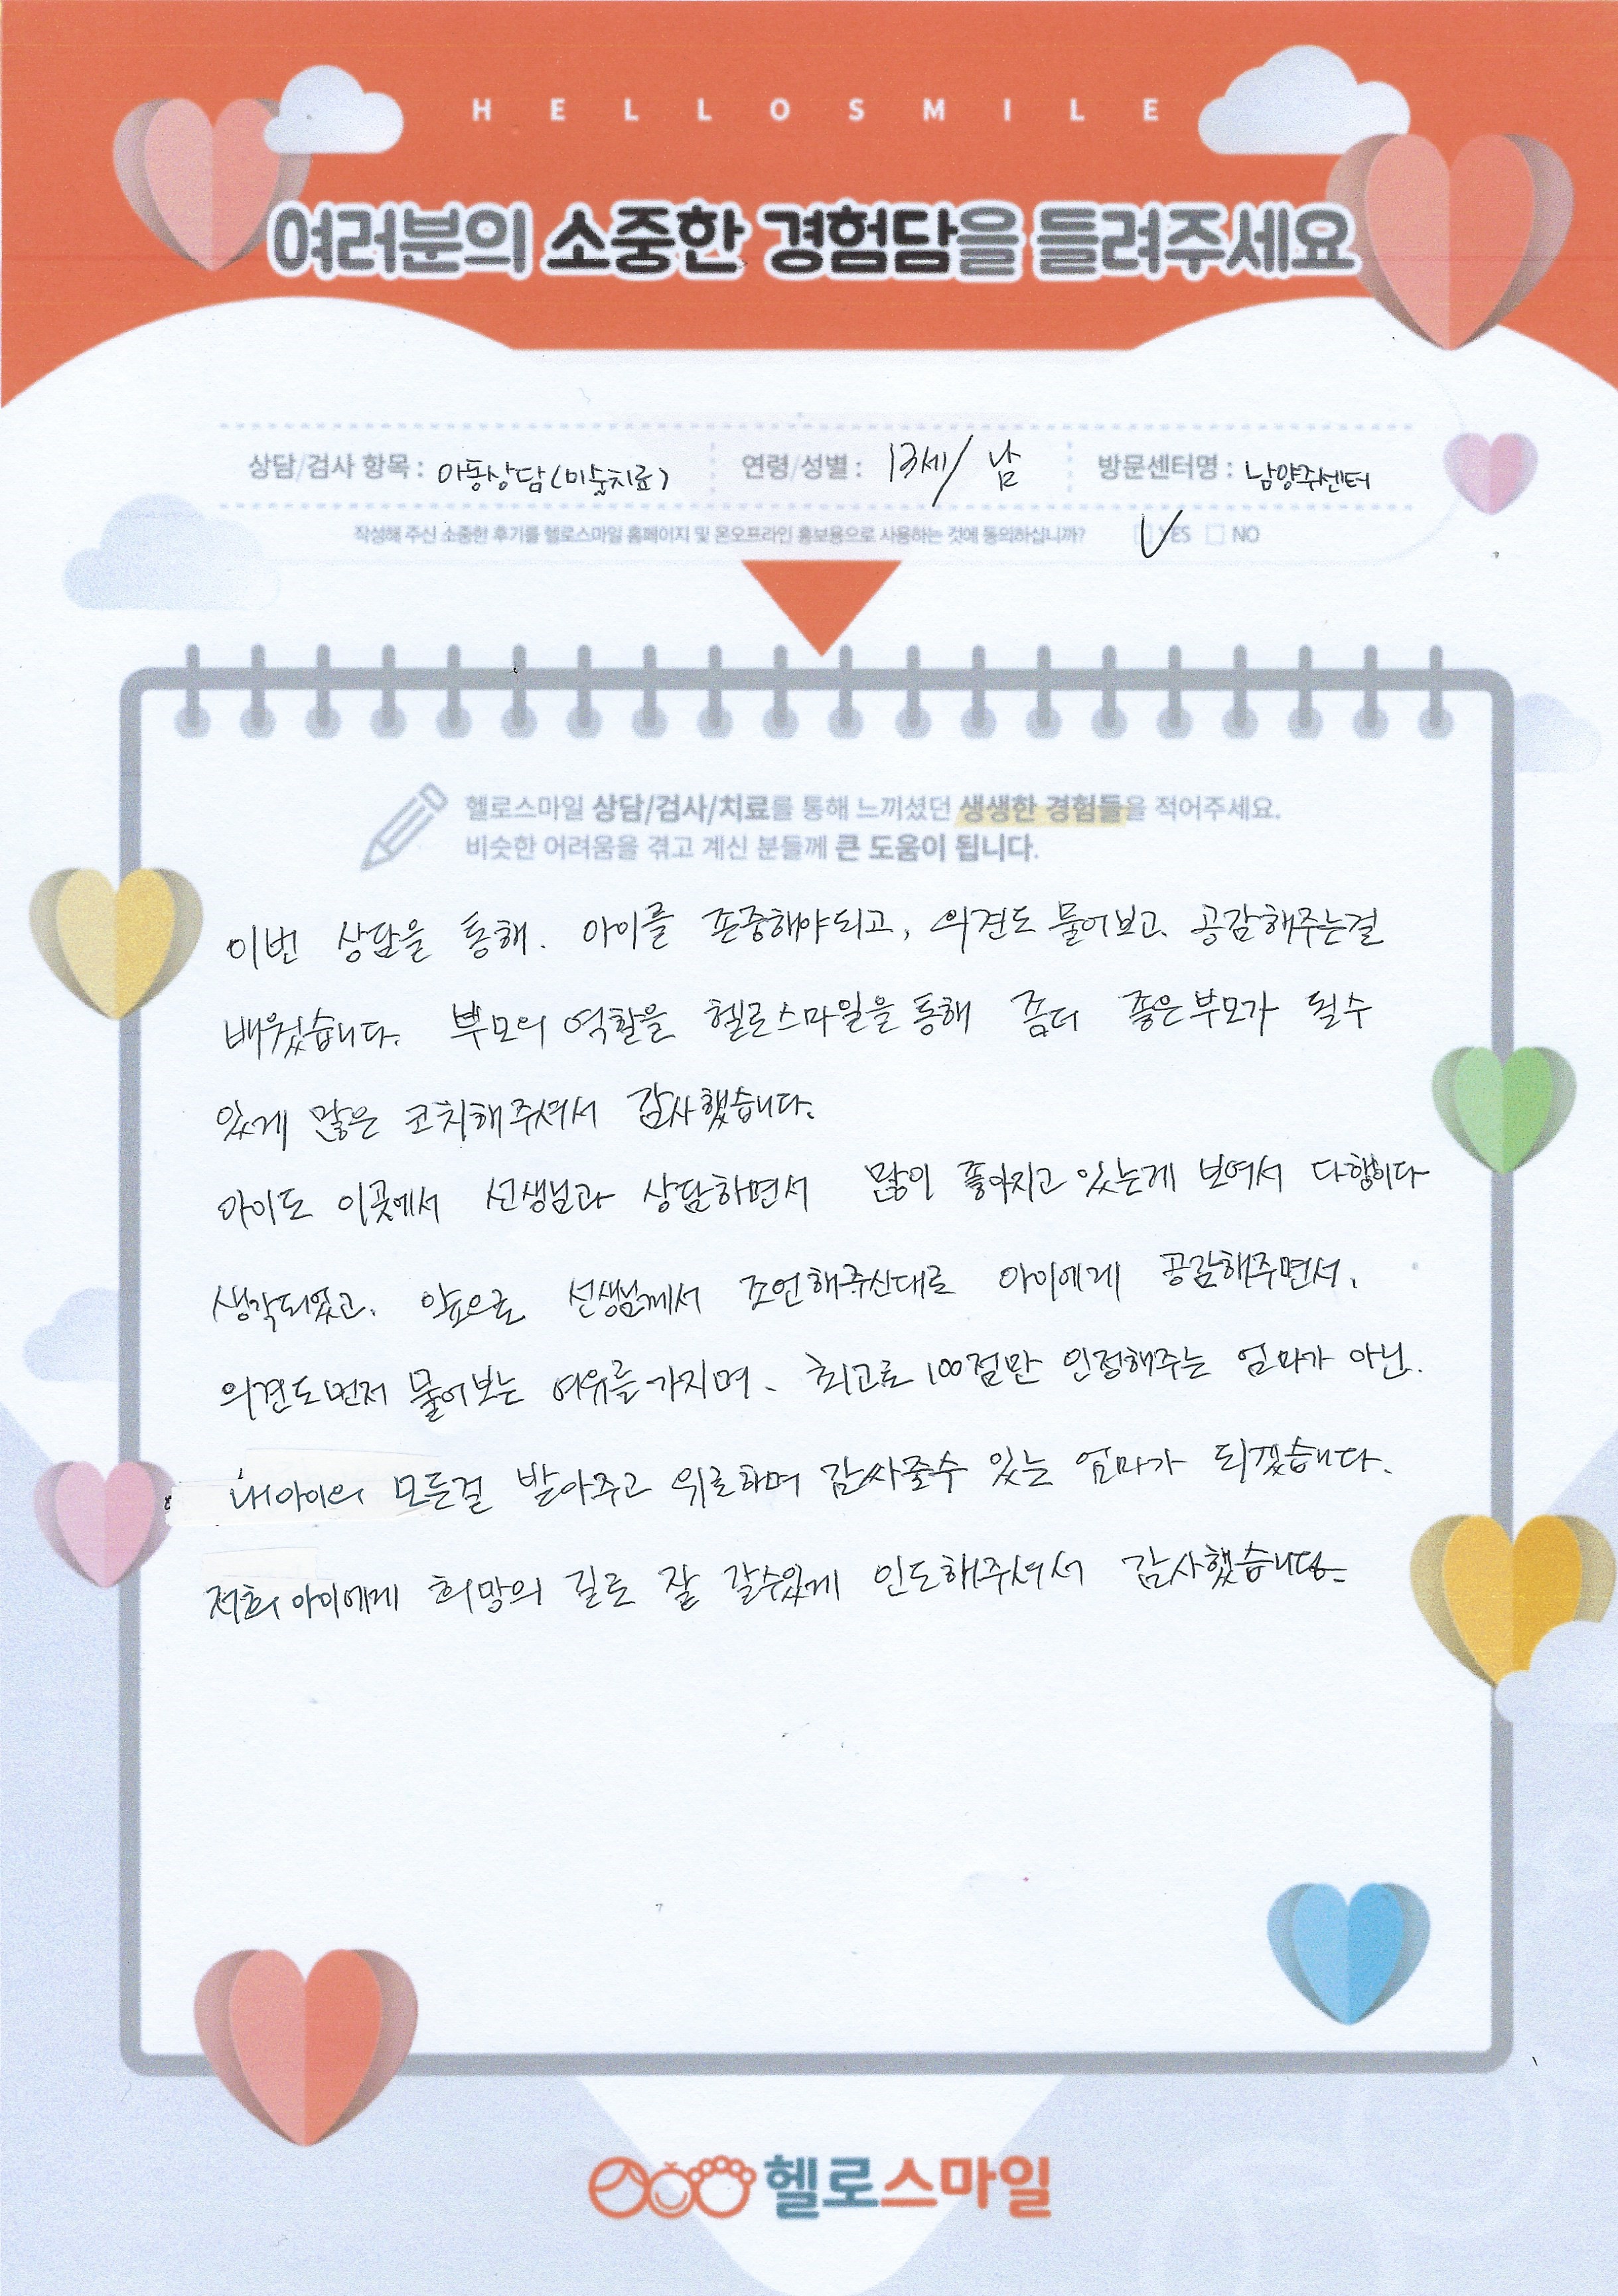 HELLOSMILE
여러분의 소중한 경험담을 들려주세요
상담/검사 항목 : 아동상담(미술치료) 연령/성별 : 13세/ 남 방문센터명 : 남양주센터
작성해 주신 소중한 후기를 헬로스마일 홈페이지 및 온오프라인 홍보용으로 사용하는 것에 동의하십니까? YES NO
헬로스마일 상담/검사/치료를 통해 느끼셨던 생생한 경험들을 적어주세요.
비슷한 어려움을 겪고 계신 분들께 큰 도움이 됩니다.
이번 상담을 통해. 아이를 존중해야되고, 의견도 물어보고. 공감해주는걸
배웠습니다. 부모의 역할을 헬로스마일을 통해 좀더 좋은부모가 될수
있게 많은 코치해주셔서 감사했습니다.
아이도 이곳에서 선생님과 상담하면서 많이 좋아지고 있는게 보여서 다행이다
생각되었고. 앞으로 선생님께서 조언해주신대로 아이에게 공감해주면서.
의견도먼저 물어보는 여유를가지며. 최고로 100점만 인정해주는 엄마가 아닌.
내아이의 모든걸 받아주고 위로하며 감싸줄수 있는 엄마가 되겠습니다.
저희 아이에게 희망의 길로 잘 갈수있게 인도해주셔서 감사했습니다.
헬로스마일